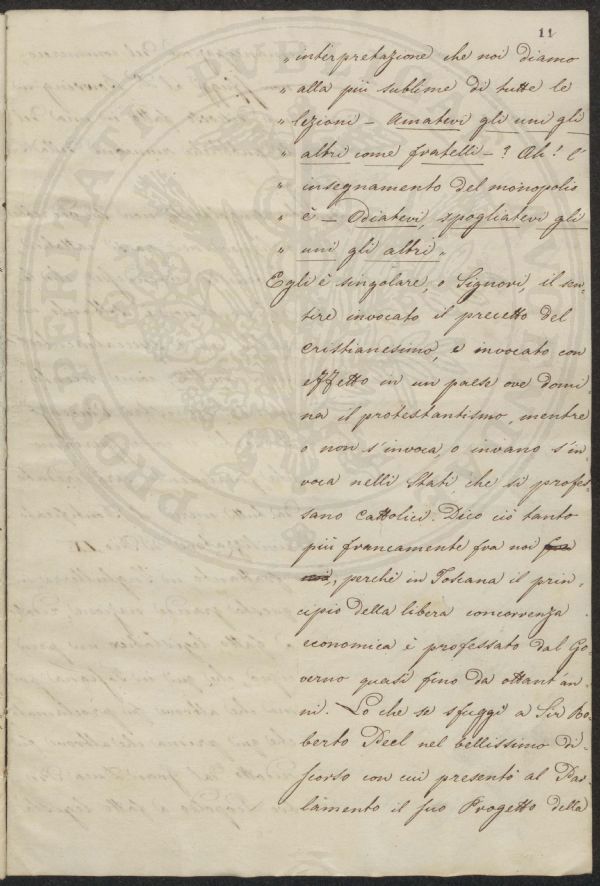 11
" interpretazione che noi diamo
" alla più sublime di tutte le
" lezioni - Amatevi gli uni gli
" altri come fratelli - ? Ah! l'
" insegnamento del monopolio
" è - Odiatevi, spogliatevi gli
" uni gli altri "
Egli è singolare, o Signori, il sen-
tire invocato il precetto del
cristianesimo, e invocato con
effetto in un paese ove domi-
na il protestantismo, mentre
o non s'invoca, o invano s'in-
voca nelli Stati, che si profes-
sano cattolici. Dico ciò tanto
più francamente fra noi fra
noi, perchè in Toscana il prin-
cipio della libera concorrenza
economica è professato dal Go-
verno quasi fino da ottant'an-
ni. Lo che se sfuggì a Sir Ro-
berto Peel nel bellissimo di-
scorso con cui presentò al Par-
lamento il suo Progetto della
PROSPERITATI PUBL